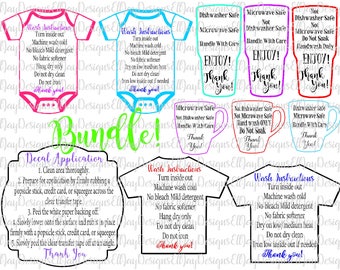 Wash Instructions
Turn inside out
Machine wash cold
No Bleach Mild detergent
No fabric softener
Hang dry only
Do not dry clean
Do not iron
Thank you!
Wash Instructions
Turn inside out
Machine wash cold
No Bleach Mild detergent
No fabric softener
Tumble dry low
Do not dry clean
Iron low inside out if needed
Thank you!
Dishwasher Safe
Not
Microwave Safe
Handle With Care
ENJOY!
Thank
You!
Microwave Safe
Not
Dishwasher Safe
Handle With Care
ENJOY!
Thank
You!
Not
Dishwasher Safe
Not
Microwave Safe
Handwash Only
ENJOY!
Thank
You!
Bundle!
Microwave Safe
Not
Dishwasher Safe
Handle With Care
Thank
You!
Not Dishwasher Safe
Not Microwave Safe
Hand wash ONLY
Do Not Soak
Thank You!
Dishwasher Safe
Not
Microwave Safe
Handle With Care
Thank
You!
Decal Application
1. Clean area thoroughly.
2. Prepare for application by firmly rubbing a
popsicle stick, credit card, or squeegee across the
clear transfer tape.
3. Peel the white paper backing off.
4. Slowly lower onto the surface and rub in place
with a popsicle stick, credit card, or squeegee.
5. Slowly peel the clear transfer tape off at an angle.
Thank You
Wash Instructions
Turn inside out
Machine wash cold
No Bleach Mild detergent
No fabric softener
Hang dry only
Do not dry clean
Do not iron
Thank you!
Wash Instructions
Turn inside out
Machine wash cold
No Bleach Mild detergent
No fabric softener
Tumble dry low
Do not dry clean
Iron low inside out if needed
Thank you!